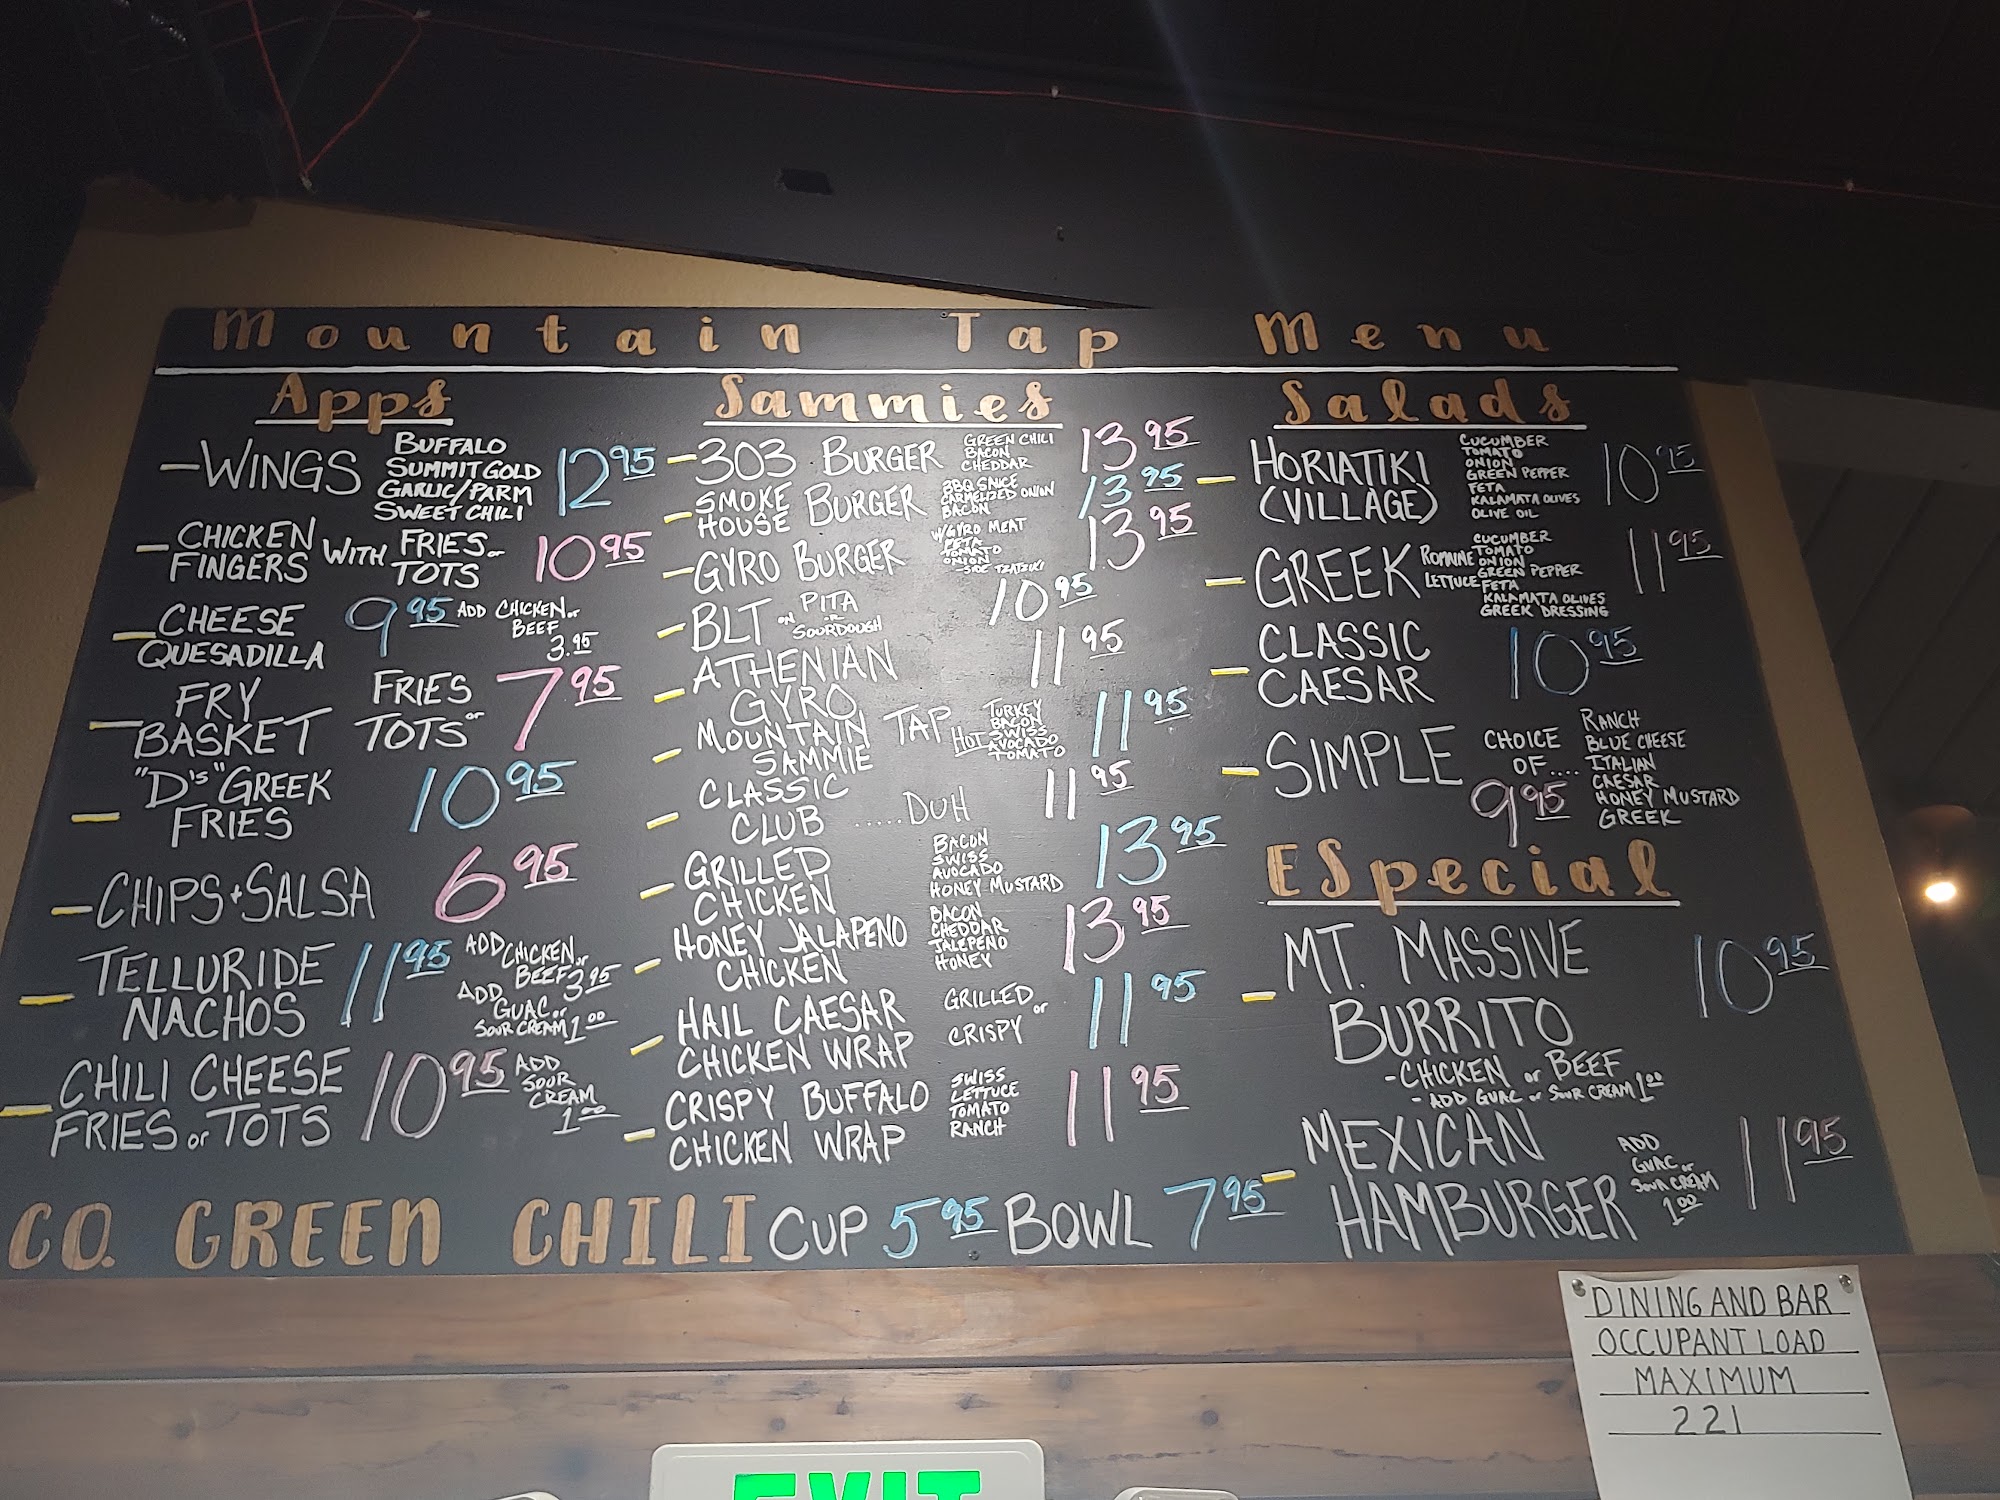 Mountain Tap Menu
Apps
WINGS BUFFALO 12 95
SUMMIT GOLD
GARLIC/PARM
SWEET CHILI
CHICKEN FINGERS WITH FRIES or TOTS 10 95
CHEESE QUESADILLA 9 95 ADD CHICKEN or
BEEF
3.95
FRY BASKET FRIES or TOTS 7 95
"D's" GREEK FRIES 10 95
CHIPS + SALSA 6 95
TELLURIDE NACHOS 11 95 ADD CHICKEN or
BEEF 3 95
ADD GUAC or
SOUR CREAM 1 00
CHILI CHEESE FRIES or TOTS 10 95 ADD
SOUR
CREAM
1 00
Sammies
303 BURGER GREEN CHILI 13 95
BACON
CHEDDAR
SMOKE HOUSE BURGER BBQ SAUCE 13 95
CARMELIZED ONION
BACON
GYRO BURGER W/GYRO MEAT 13 95
FETA
TOMATO
ONION
-SIDE TZATZIKI
BLT ON PITA OR SOURDOUGH 10 95
ATHENIAN GYRO 11 95
MOUNTAIN TAP SAMMIE HOT TURKEY 11 95
BACON
SWISS
AVOCADO
TOMATO
CLASSIC CLUB .....DUH 11 95
GRILLED CHICKEN BACON 13 95
SWISS
AVOCADO
HONEY MUSTARD
HONEY JALAPENO CHICKEN BACON 13 95
CHEDDAR
JALEPENO
HONEY
HAIL CAESAR CHICKEN WRAP GRILLED or CRISPY 11 95
CRISPY BUFFALO CHICKEN WRAP SWISS 11 95
LETTUCE
TOMATO
RANCH
Salads
HORIATIKI (VILLAGE) CUCUMBER 10 95
TOMATO
ONION
GREEN PEPPER
FETA
KALAMATA OLIVES
OLIVE OIL
GREEK ROMAINE LETTUCE CUCUMBER 11 95
TOMATO
ONION
GREEN PEPPER
FETA
KALAMATA OLIVES
GREEK DRESSING
CLASSIC CAESAR 10 95
SIMPLE CHOICE OF.... 9 95
RANCH
BLUE CHEESE
ITALIAN
CAESAR
HONEY MUSTARD
GREEK
ESpecial
MT. MASSIVE BURRITO 10 95
-CHICKEN or BEEF
- ADD GUAC or SOUR CREAM 1 00
MEXICAN HAMBURGER ADD 11 95
GUAC or
SOUR CREAM
1 00
CO. GREEN CHILI CUP 5 95 BOWL 7 95
DINING AND BAR
OCCUPANT LOAD
MAXIMUM
221
EXIT